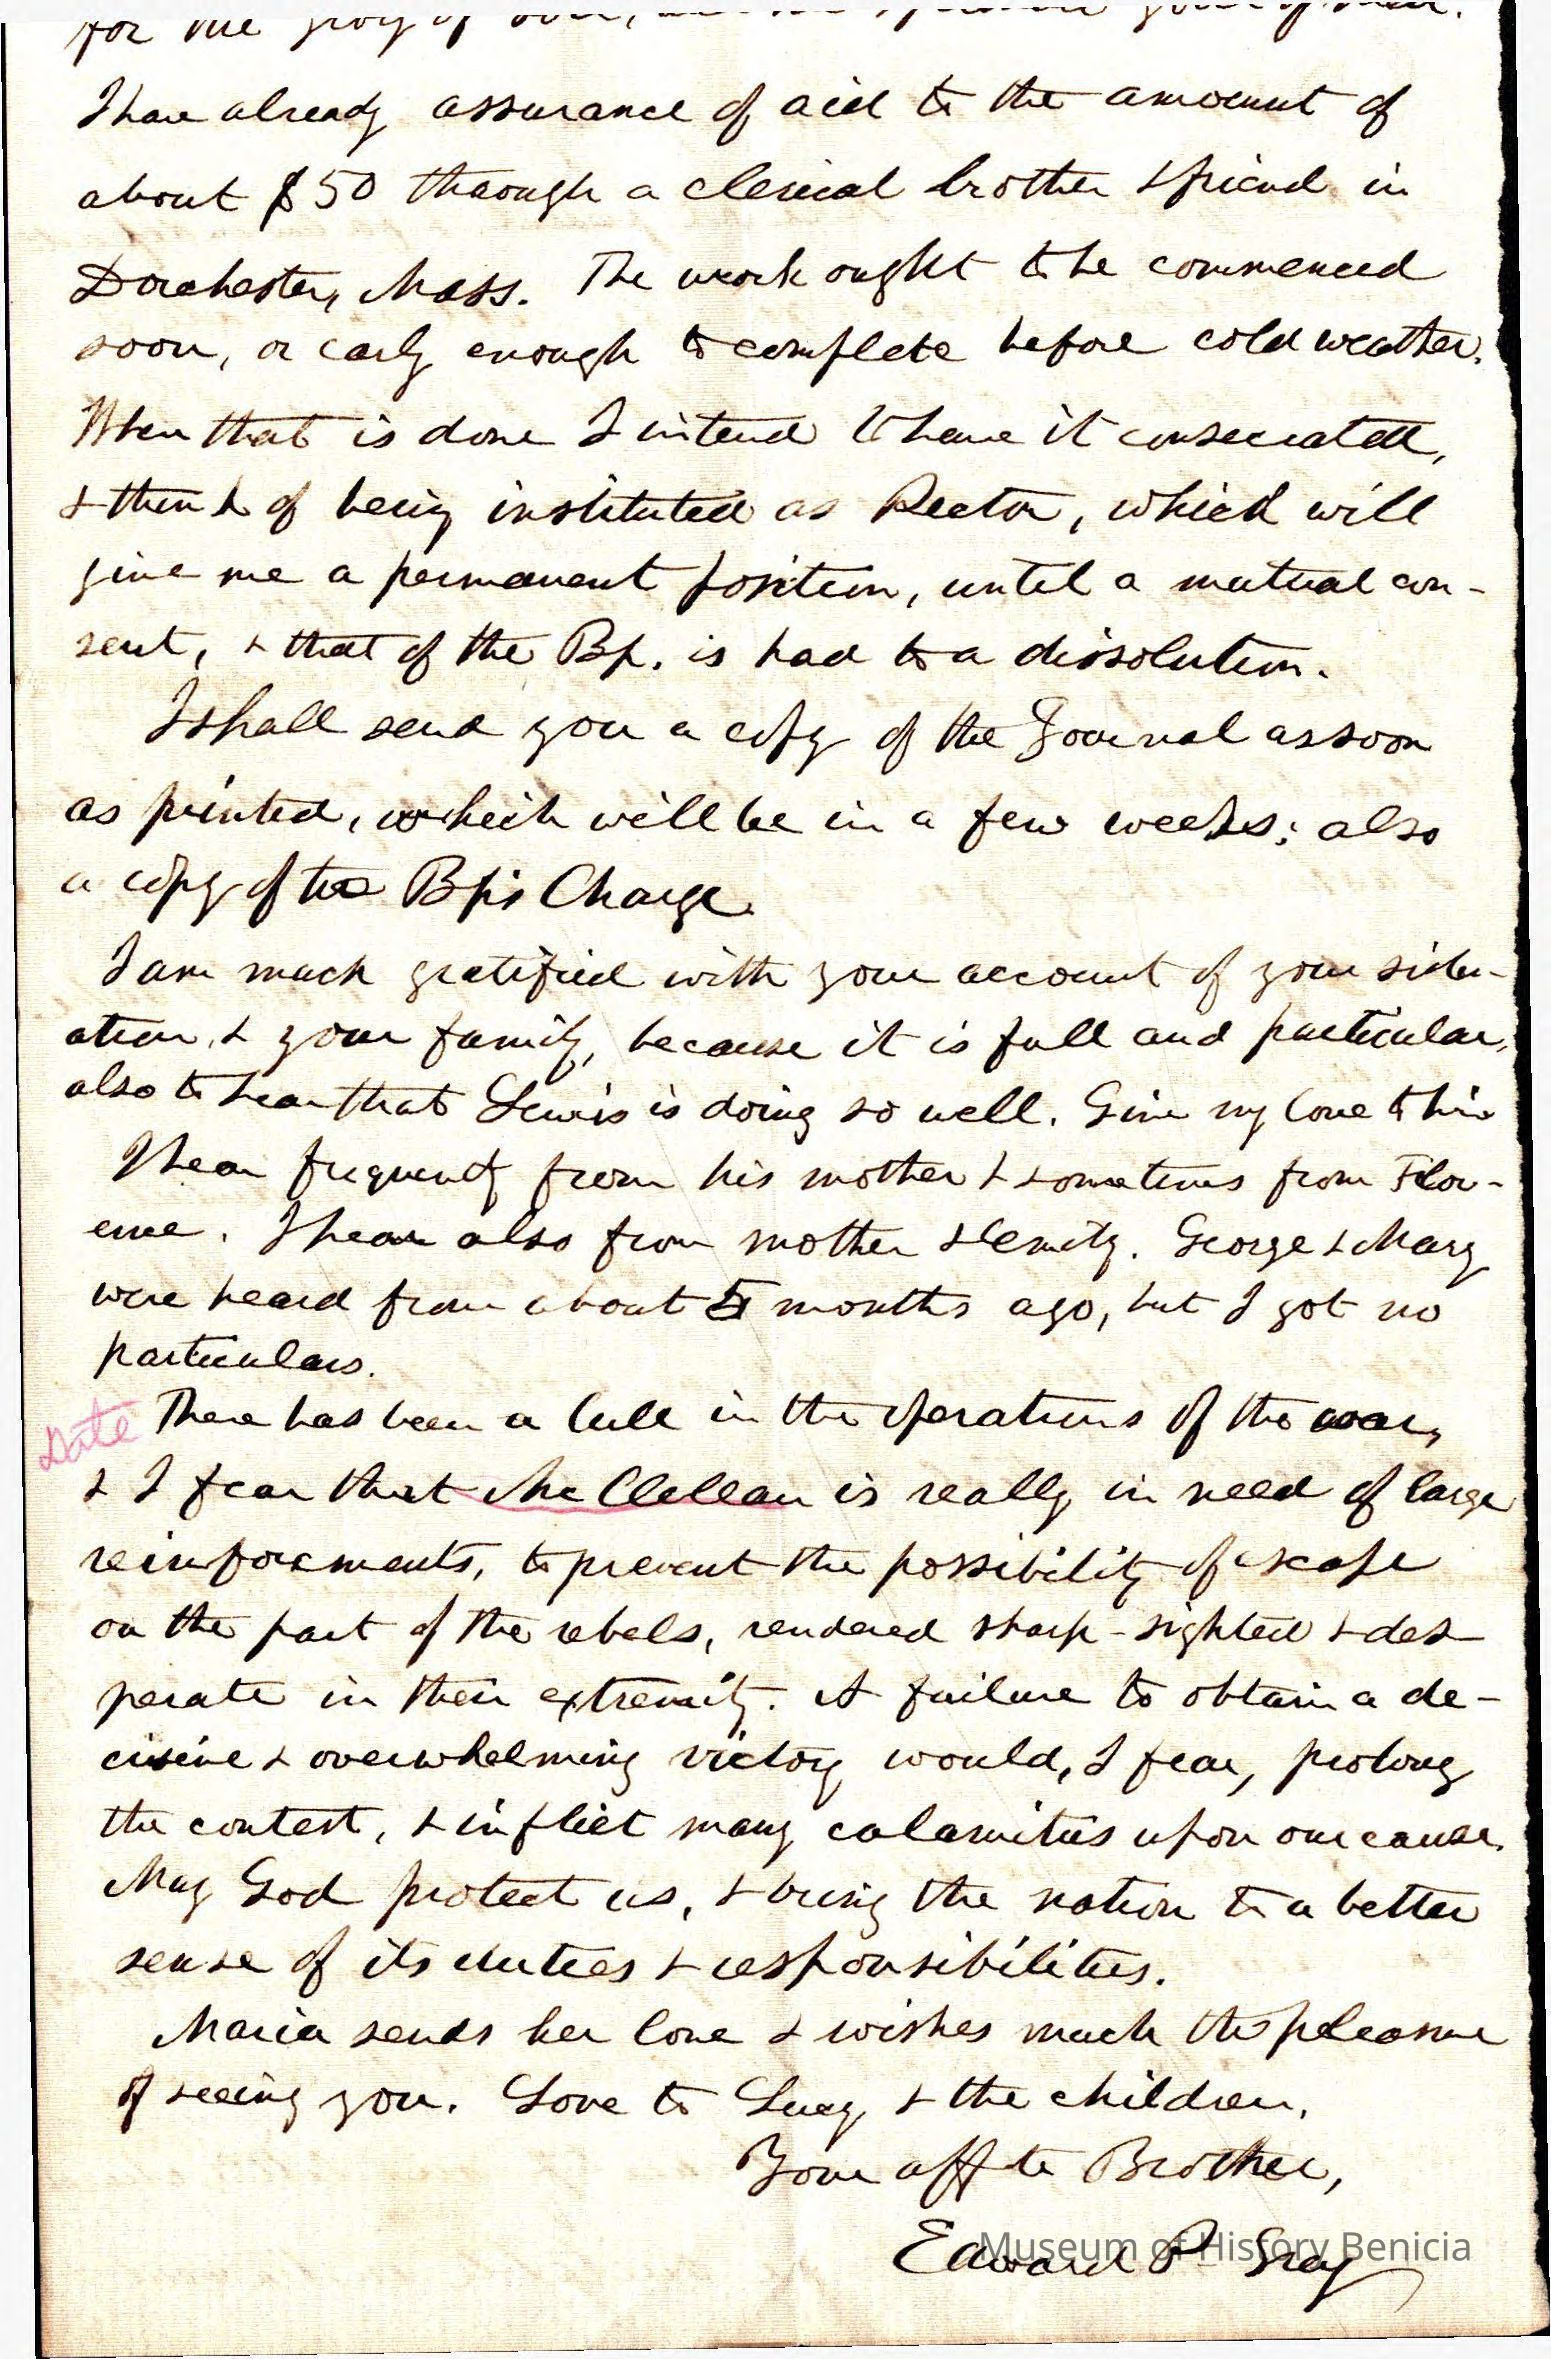 for the glory of
I have already assurance of aid to the amount of
about $50 through a clerical brother & friend in
Dorchester, Mass. The work ought to be commenced
soon, or early enough to complete before cold weather.
When that is done I intend to have it consecrated,
& think of being instituted as Rector, which will
give me a permanent position, until a mutual con-
sent, & that of the Bp. is had to a dissolution.
I shall send you a copy of the Journal as soon
as printed, which will be in a few weeks; also
a copy of the Bp's Charge.
I am much gratified with your account of your situ-
ation, & your family, because it is full and particular,
also to hear that Lewis is doing so well. Give my love to him
I hear frequently from his mother & sometimes from Flor-
ence. I hear also from mother & Emily. George & Mary
were heard from about 5 months ago, but I got no
particulars.
Date There has been a lull in the operations of the war,
& I fear that McClellan is really in need of large
reinforcements, to prevent the possibility of escape
on the part of the rebels, rendered sharp-sighted & des-
perate in their extremity. A failure to obtain a de-
cisive & overwhelming victory would, I fear, prolong
the contest, & inflict many calamities upon our cause.
May God protect us, & bring the nation to a better
sense of its duties & responsibilities.
Maria sends her love & wishes much the pleasure
of seeing you. Love to Lucy & the children.
Your affte Brother,
Edward P Gray
Museum of History Benicia